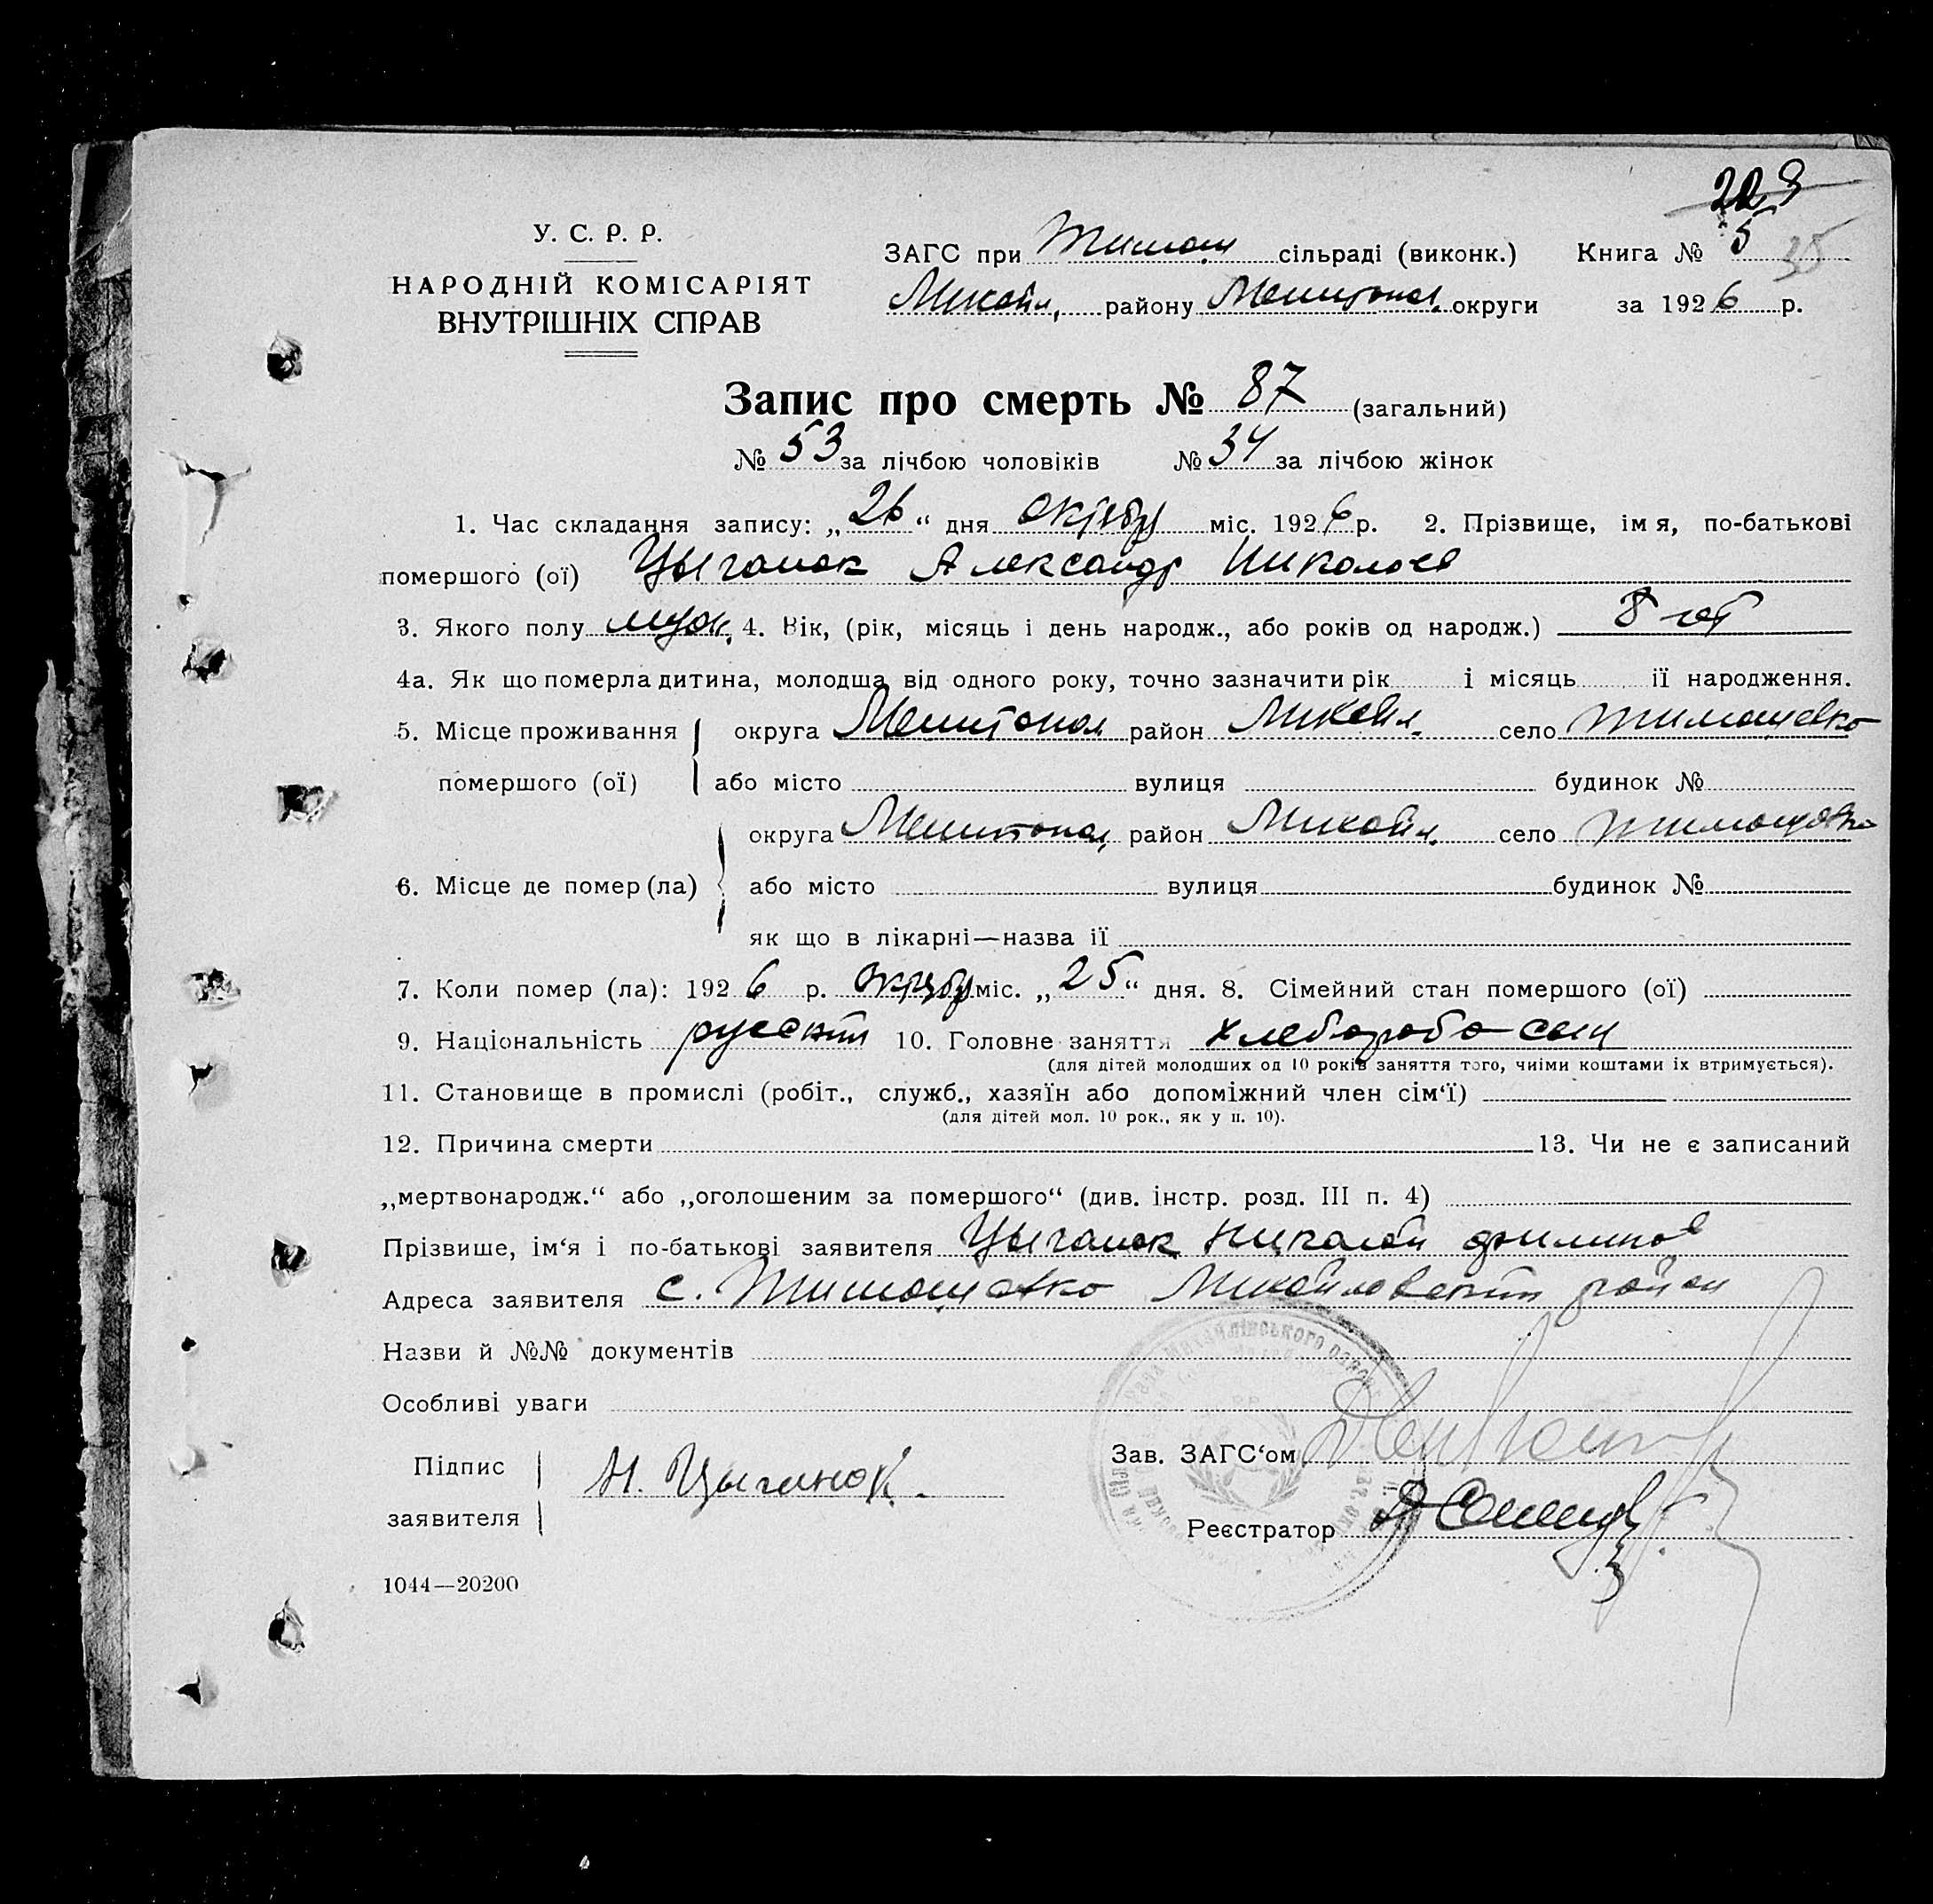 228
У. С. Р. Р.
НАРОДНІЙ КОМІСАРІЯТ
ВНУТРІШНІХ СПРАВ
ЗАГС при Тимош сільраді (виконк.) Книга № 5 35
Михайл, району Мелитопол, округи за 1926 р.
Запис про смерть № 87 (загальний)
№ 53 за лічбою чоловіків № 34 за лічбою жінок
1. Час складання запису: „26“ дня октября міс. 1926 р. 2. Прізвище, імя, по-батькові
помершого (ої) Цыганок Александр Николаев
3. Якого полу муж. 4. Вік, (рік, місяць і день народж., або років од народж.) 8 лет
4а. Як що померла дитина, молодща від одного року, точно зазначити рік і місяць її народження.
5. Місце проживання округа Мелитопол район Михайл. село Тимошевко
помершого (ої) або місто вулиця будинок №
округа Мелитопол, район Михайл. село Тимошевко
6. Місце де помер (ла) або місто вулиця будинок №
як що в лікарні—назва її
7. Коли помер (ла): 1926 р. октября міс. „25“ дня. 8. Сімейний стан помершого (ої)
9. Національність русский 10. Головне заняття хлебороба сын
(для дітей молодших од 10 років заняття того, чиїми коштами їх втримується).
11. Становище в промислі (робіт., служб., хазяїн або допоміжний член сім‘ї)
(для дітей мол. 10 рок., як у п. 10).
12. Причина смерти 13. Чи не є записаний
„мертвонародж.“ або „оголошеним за помершого“ (див. інстр. розд. III п. 4)
Прізвише, ім‘я і по-батькові заявителя Цыганок Николай Филипов
Адреса заявителя с. Тимошевко Михайловский район
Назви й №№ документів
Особливі уваги
Підпис
заявителя
Н. Цыганок.
Зав. ЗАГС‘ом
Реєстратор
1044—20200